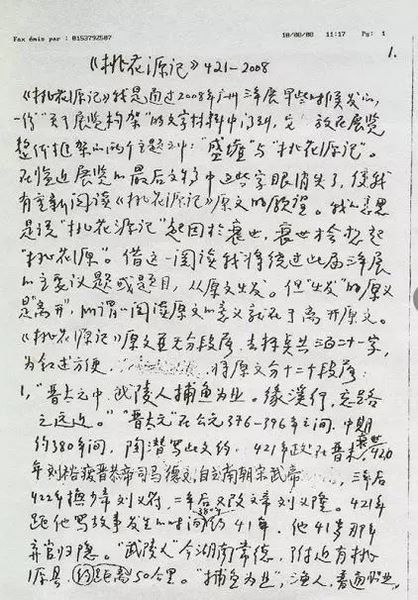 Fax émis par : 0153792507 10/08/08 11:17 Pg: 1
1.
《桃花源记》421-2008
《桃花源记》我是通过2008年广州三年展早些时候发的,
一份"关于展览构架"的文字材料中读到,它放在展览
整个框架的两个主题之中:"盛 "与"桃花源记"。
在临近展览的最后文字中这些字眼消失了,使我
有重新阅读《桃花源记》原文的愿望。我的意思
是说"桃花源记"起因于衰世,衰世才会想起
"桃花源"。借这一阅读我将绕过此届三年展
的主要议题或题目,从原文出发。但"出发"的原义
是"离开",所谓"阅读原文的意义就在于离开原文。
《桃花源记》原文并无分段落,去标点共三百二十字,
为叙述方便, 将原文分十二个段落:
1,"晋太元中,武陵人捕鱼为业。缘溪行,忘路
之远近。""晋太元"在公元376-396年之间,中期
约380年间,陶潜写此文约 421年 在晋末 420
年刘裕废晋恭帝司马德文,自立南朝宋武帝 三年后
422年 少帝刘义符,二年后又 文帝刘义隆。421年
距他写故事发生的时间 约41年,他41岁那年
弃官归隐。"武陵人"今湖南常德,附近有桃
源县,约距离50公里。"捕鱼为业",渔人,普通职业,